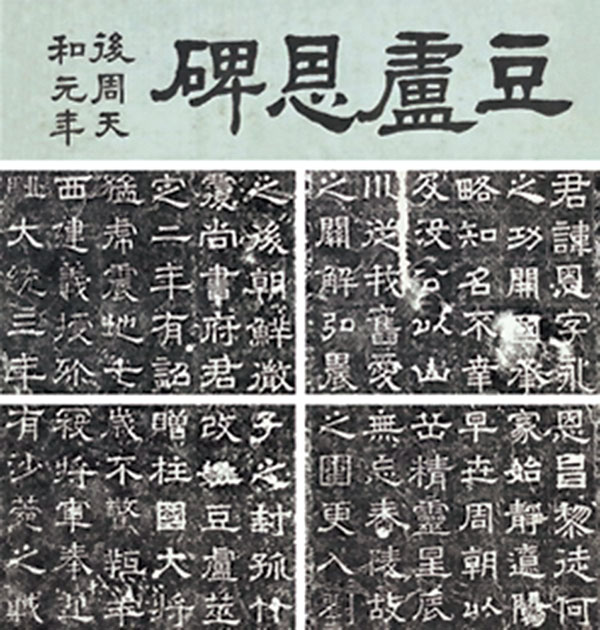 豆盧恩碑
後周天
和元年
君諱恩字永恩昌黎徒何
之功開國承家始靜遼陽
略知名不幸早世周朝以
及沒公以山岳精靈星辰
川從我舊愛無忘舂陵故
之關解弘農之圍更入劉
之後朝鮮微子之封孤竹
尚書府君改姓豆盧
定二年有詔贈柱國大將
猛虎震地七歲不驚羊
西建義授殄寇將軍奉
大統三年有沙苑之戰